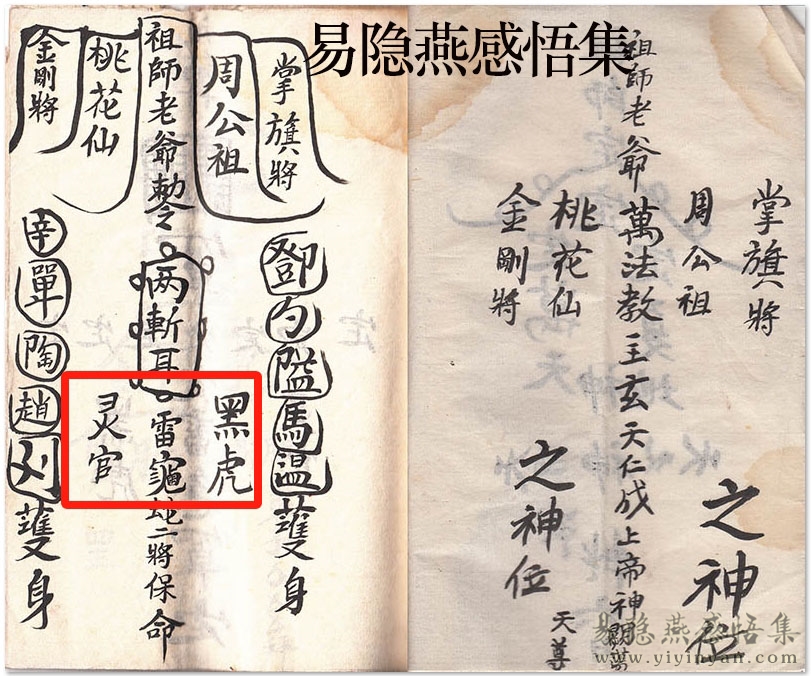 易隐燕感悟集
祖師老爺萬法教主玄天仁成上帝神
掌旗将
周公祖
桃花仙
金剛將
之神位
之神位
天尊
掌旗將
周公祖
祖師老爺勅令
桃花仙
金剛將
鄧
馬溫護身
黑虎
两斬耳
雷龜蛇二將保命
灵官
辛單陶趙刘護身
易隐燕感悟集
www.yiyinyan.com